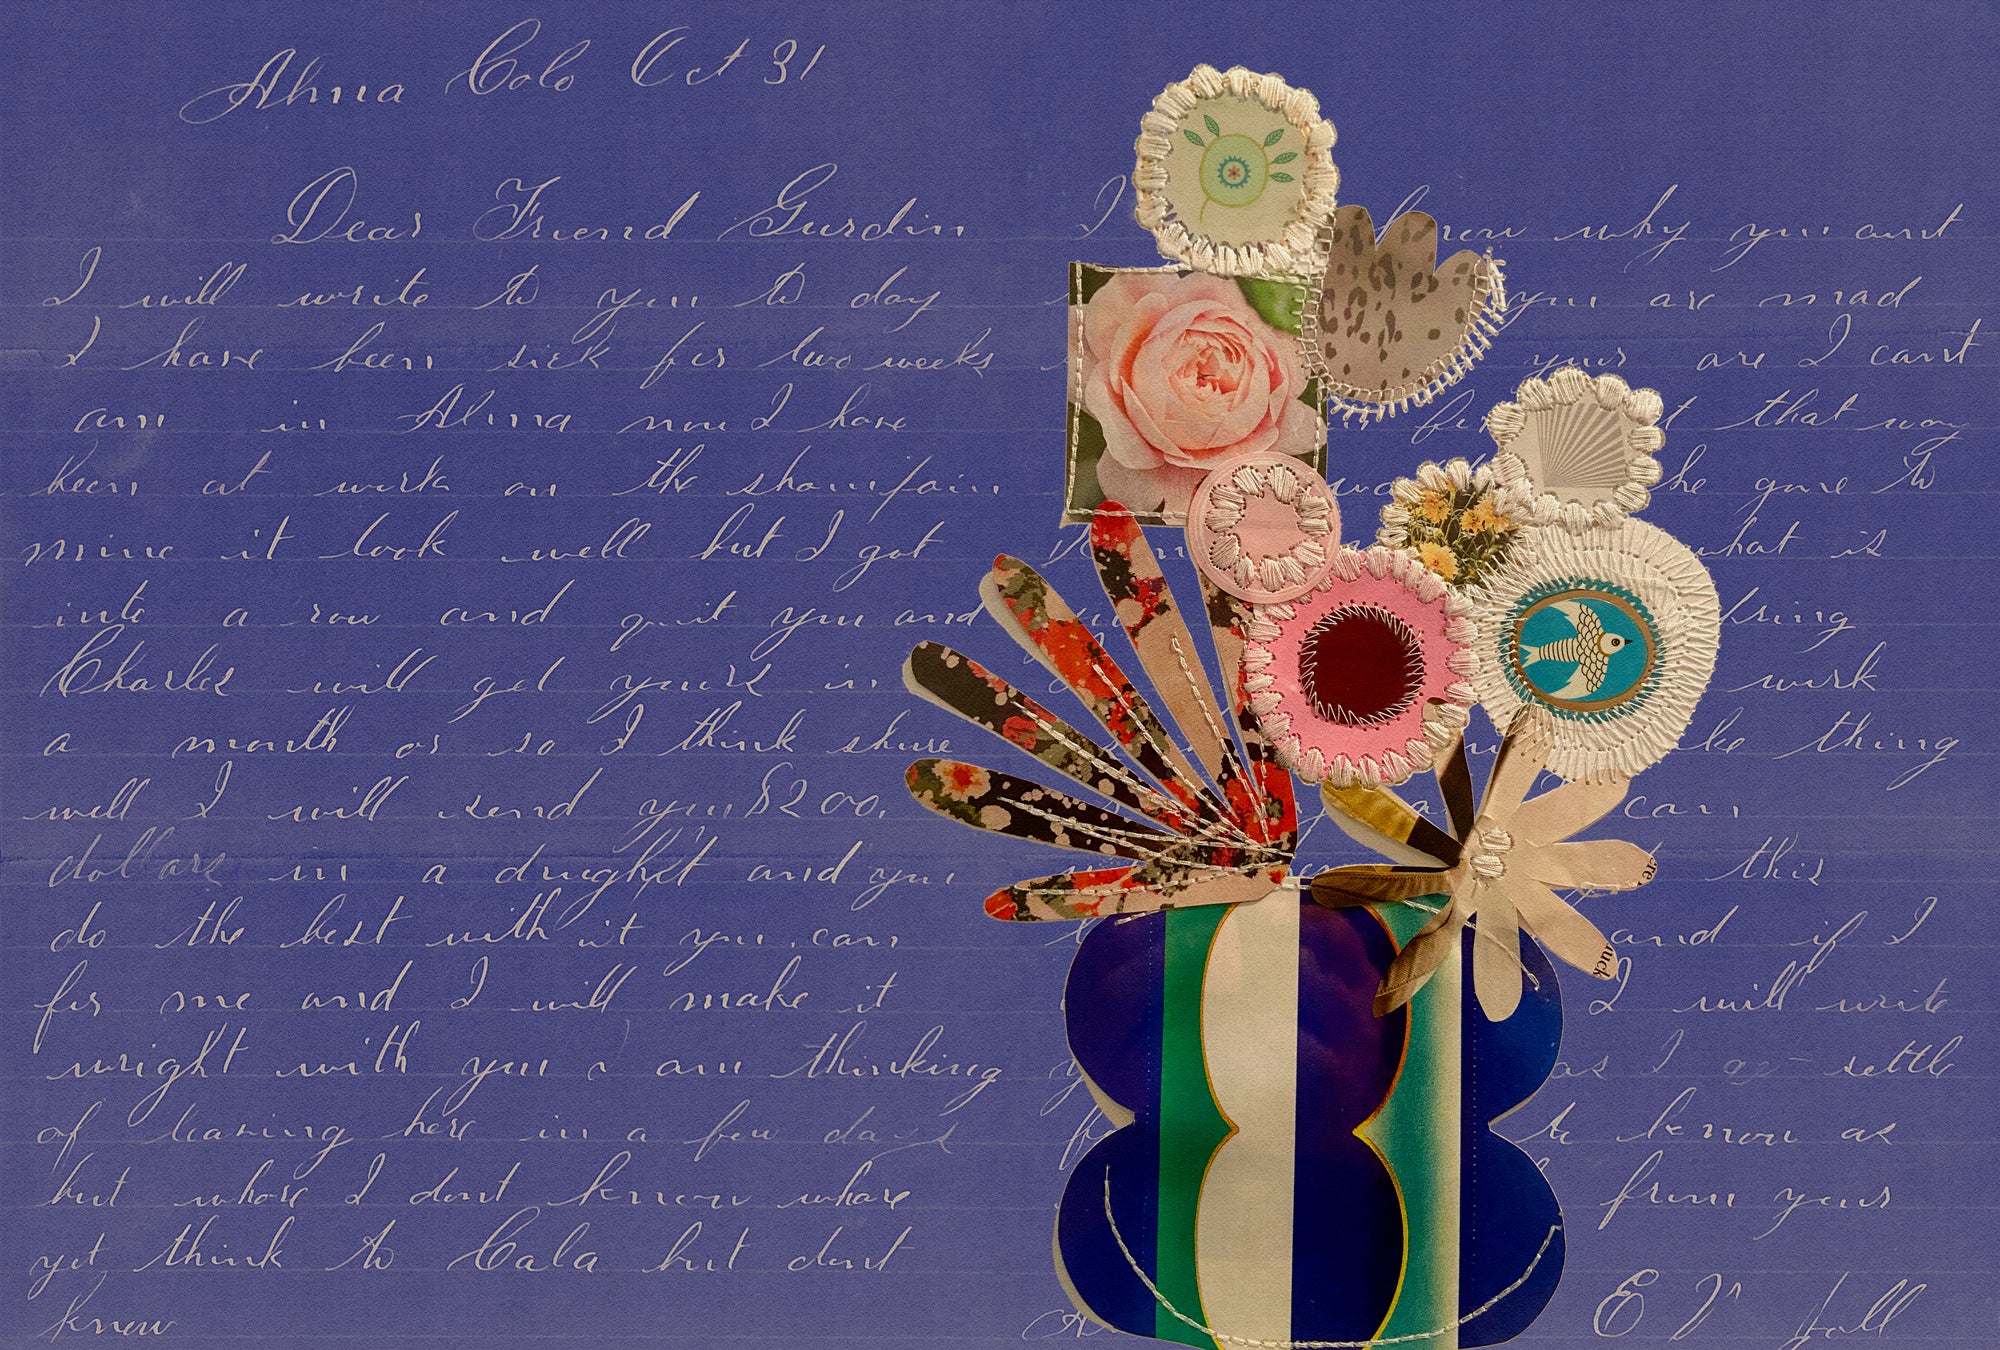 Alma Colo Oct 31
Dear Friend Gurdin
I will write to you to day
I have been sick for two weeks
am in Alma now I have
been at work on the
mine it look well but I got
into a row and quit you and
Charles will get yours in
a month or so I think shure
well I will send you $200.
dollars in a draught and you
do the best with it you can
for me and I will make it
wright with you I am thinking
of leaving here in a few days
but whare I dont know whare
yet think to Cala but dont
know
I know why you aint
you are mad
yours are I cant
that way
he gone to
what is
bring
work
thing
can
this
and if I
I will write
as I settle
to know as
from yours
E V Hall